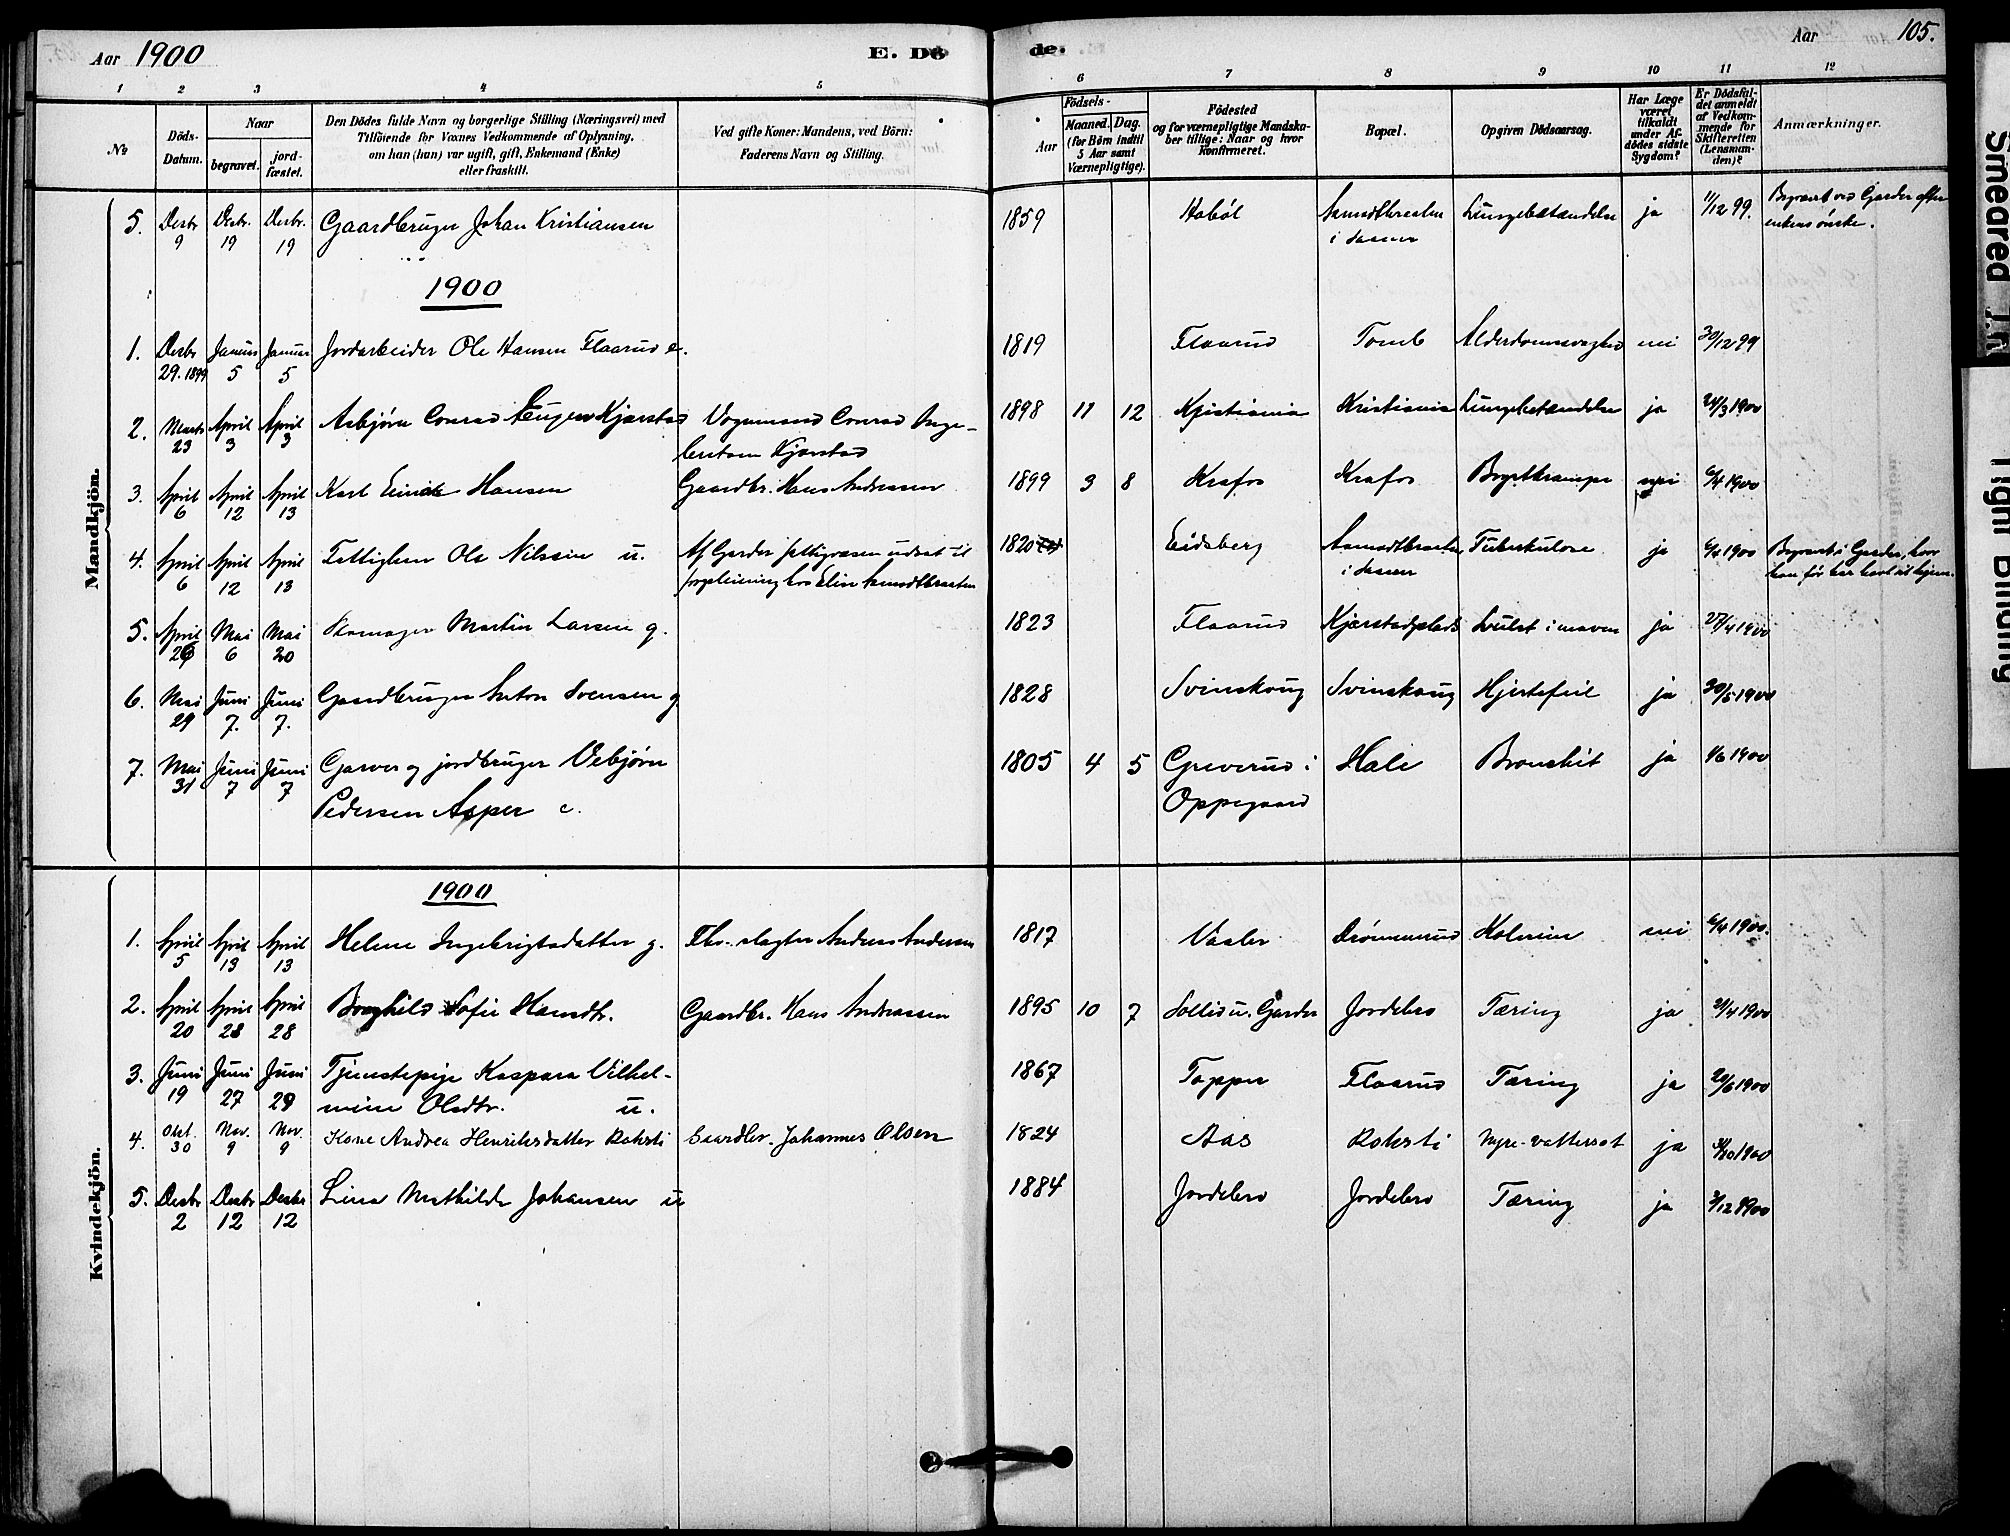 Aar 1900 E. Dö
de. Aar 105.
1 2 3 4 5
6 7 8 9 10 11 12
No
Döds-
Datum.
Naar
begravet.
jord-
fæstet.
Den Dödes fulde Navn og borgerlige Stilling (Næringsvei) med
Tilföiende for Voxnes Vedkommende af Oplysning,
om han (hun) var ugift, gift, Enkemand (Enke)
eller fraskilt.
Ved gifte Koner: Mandens, ved Börn:
Faderens Navn og Stilling.
Födsels-
Aar
Maaned. Dag.
(for Börn indtil
5 Aar samt
Værnepligtige).
Födested
og for værnepligtige Mandska-
ber tillige: Naar og hvor
konfirmeret.
Bopæl.
Opgiven Dödsaarsag.
Har Læge
været
tilkaldt
under Af-
dödes sidste
Sygdom?
Er Dödsfal-
det anmeldt
af Vedkom-
mende for
Skifteretten
(Lensman-
den)?
Anmærkninger.
Mandkjön.
5. Desbr 9 Desbr. 19 Desbr. 19 Gaardbruger Johan Kristiansen 1859 Haböl i Ljungebetændelse ja 11/12 99. Begravet ved Garder efter
enkens önske.
1900
1. Desbr 29. 1899 Januar 5 Januar 5 Jordarbeider Ole Hansen Flaarud e. 1819 Flaarud Tomb Alderdomssvaghed nei 30/12 99
2. Marts 23 April 3 April 3 Asbjørn Conrad Eugen Kjærstad Vognmand Conrad Inge-
bertsen Kjærstad 1898 11 12 Kristiania Kristiania Lungebetændelse ja 24/3 1900
3. April 6 April 12 April 13 Karl Hansen Gaardbr. Hans Andreassen 1899 3 8 Krafos Krafos Brystkrampe nei 6/4 1900
4. April 6 April 12 April 13 Fattiglem Ole Nilssen u. Af Garder fattigvæsen udsat til
forpleining hos Elise 1820 Eidsberg i Tuberkulose ja 6/4 1900 Begravet i Garder, hvor
han før har havt sit hjem.
5. April 26 Mai 6 Mai 20 Skomager Martin Larsen g. 1823 Flaarud Kjærstadplads Svulst i maven ja 27/4 1900
6. Mai 29 Juni 7. Juni 7. Gaardbruger Anton Svensen g 1828 Svinskoug Svinskoug Hjertefeil ja 30/5 1900
7. Mai 31 Juni 7 Juni 7 Garver og jordbruger Vebjørn
Pedersen Asper e. 1805 4 5 Greverud i
Oppegaard Hale Bronchit ja 1/6 1900
Kvindekjön.
1900
1. April 5 April 13 April 13 Helene Ingebrigtsdatter g. slagter Anders Andersen 1817 Vaaler Drömmerud Kolerine nei 6/4 1900.
2. April 20 April 28 April 28 Borghild Sofie Hansdtr. Gaardbr. Hans Andreassen 1895 10 7 Sollis u. Garder Jordebro Tæring ja 21/4 1900
3. Juni 19 Juni 27 Juni 29 Tjenstepige Kaspara Vilhel-
mine Olsdtr. u. 1867 Topper Flaarud Tæring ja 20/6 1900
4. Okt. 30 Nov. 9 Nov. 9 Kone Andrea Henriksdatter Roksti Gaardbr. Johannes Olsen 1824 Aas Roksti Nyre-vattersot ja 31/10 1900
5. Desbr 2 Desbr 12 Desbr 12 Lina Mathilde Johansen u 1884 Jordebro Jordebro Tæring ja 3/12 1900
Smeared
Tight Binding